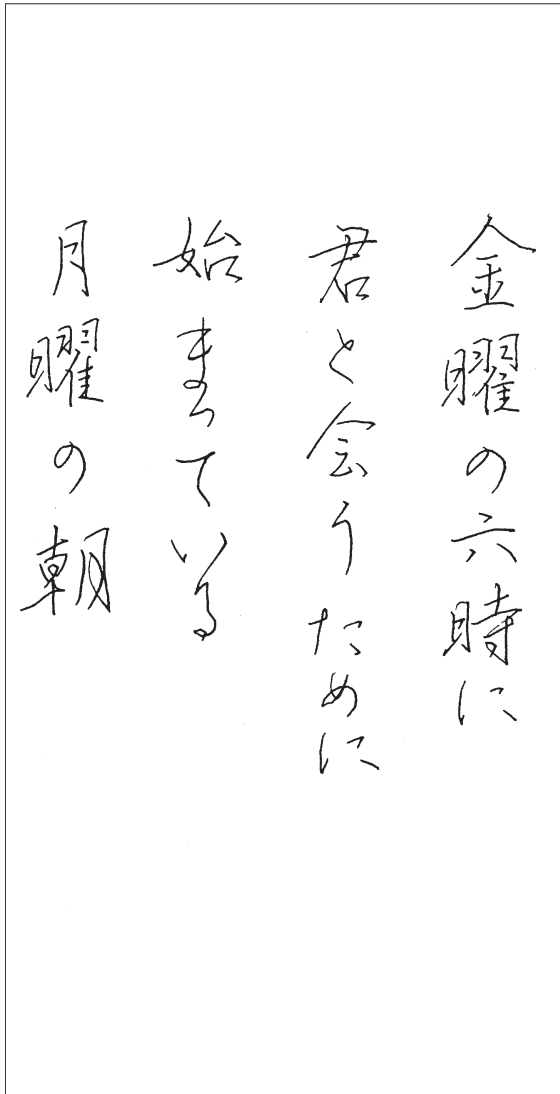 金曜の六時に
君と会うために
始まっている
月曜の朝